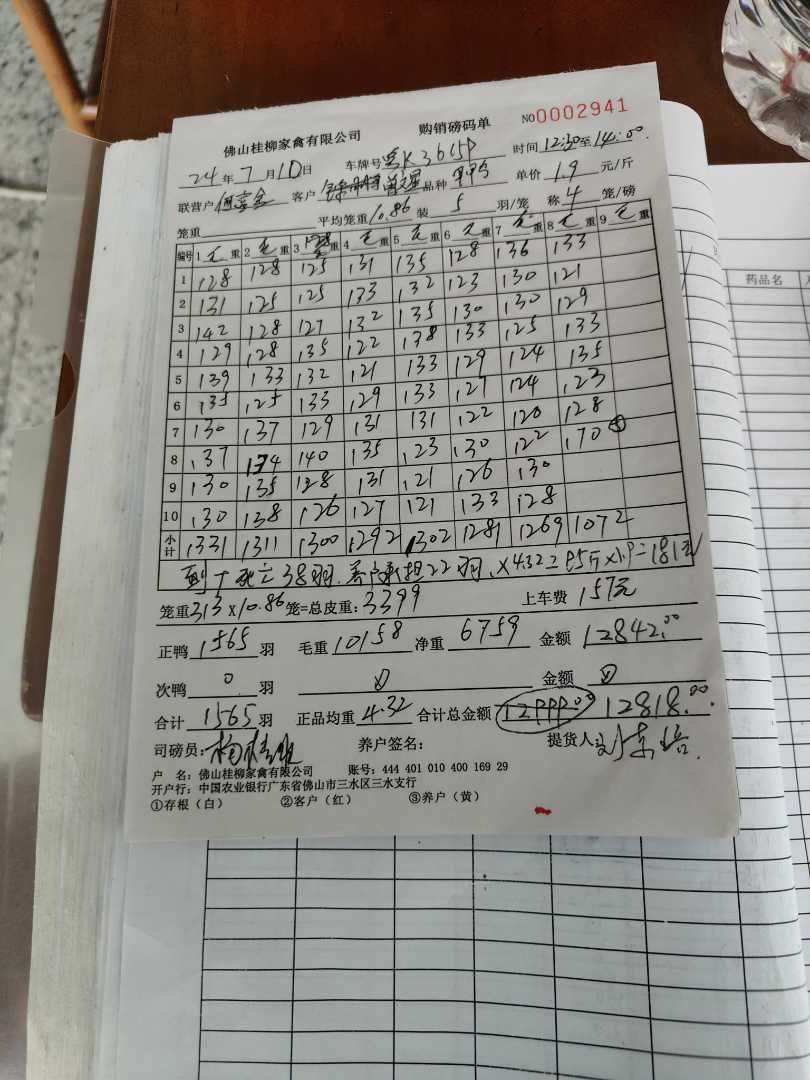 佛山桂柳家禽有限公司 购销磅码单 NO0002941
24年7月10日 车牌号 K3615P 时间12:30至14:00
联营户 客户 品种 单价1.9元/斤
笼重 平均笼重10.86 装5羽/笼 称4笼/磅
编号 1毛重 2毛重 3毛重 4毛重 5毛重 6毛重 7毛重 8毛重 9毛重
1 128 128 125 131 135 128 136 133
2 131 125 125 133 132 123 130 121
3 142 128 127 132 135 130 130 129
4 129 128 135 122 138 133 125 133
5 139 133 132 121 133 129 124 135
6 135 125 133 129 133 127 124 123
7 130 137 129 131 131 122 120 128
8 137 134 140 135 123 130 122 170⑤
9 130 135 128 131 121 126 130
10 130 138 126 127 121 133 128
小计 1331 1311 1300 1292 1302 1281 1269 1072
到 死亡38羽.养户承担22羽.×4.32=95斤×1.9=181元
笼重313×10.86笼=总皮重:3399 上车费157元
正鸭1565羽 毛重10158 净重6759 金额12842.00
次鸭0羽 0 金额0
合计1565羽 正品均重4.32 合计总金额12999.00 12818.00
司磅员: 养户签名: 提货人
户 名:佛山桂柳家禽有限公司 账号:444 401 010 400 169 29
开户行:中国农业银行广东省佛山市三水区三水支行
①存根(白) ②客户(红) ③养户(黄)
药品名